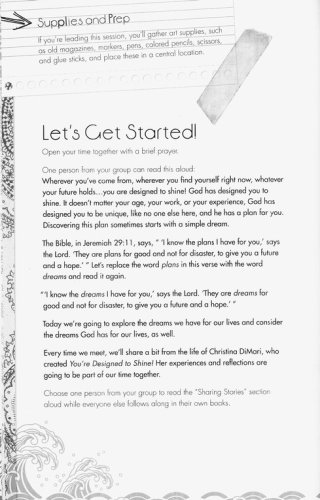 Supplies and Prep
If you're leading this session, you'll gather art supplies, such
as old magazines, markers, pens, colored pencils, scissors,
and glue sticks, and place these in a central location.
Let's Get Started!
Open your time together with a brief prayer.
One person from your group can read this aloud:
Wherever you've come from, wherever you find yourself right now, whatever
your future holds...you are designed to shine! God has designed you to
shine. It doesn't matter your age, your work, or your experience, God has
designed you to be unique, like no one else here, and he has a plan for you.
Discovering this plan sometimes starts with a simple dream.
The Bible, in Jeremiah 29:11, says, " 'I know the plans I have for you,' says
the Lord. 'They are plans for good and not for disaster, to give you a future
and a hope.' " Let's replace the word plans in this verse with the word
dreams and read it again.
"'I know the dreams I have for you,' says the Lord. 'They are dreams for
good and not for disaster, to give you a future and a hope.' "
Today we're going to explore the dreams we have for our lives and consider
the dreams God has for our lives, as well.
Every time we meet, we'll share a bit from the life of Christina DiMari, who
created You're Designed to Shine! Her experiences and reflections are
going to be part of our time together.
Choose one person from your group to read the "Sharing Stories" section
aloud while everyone else follows along in their own books.